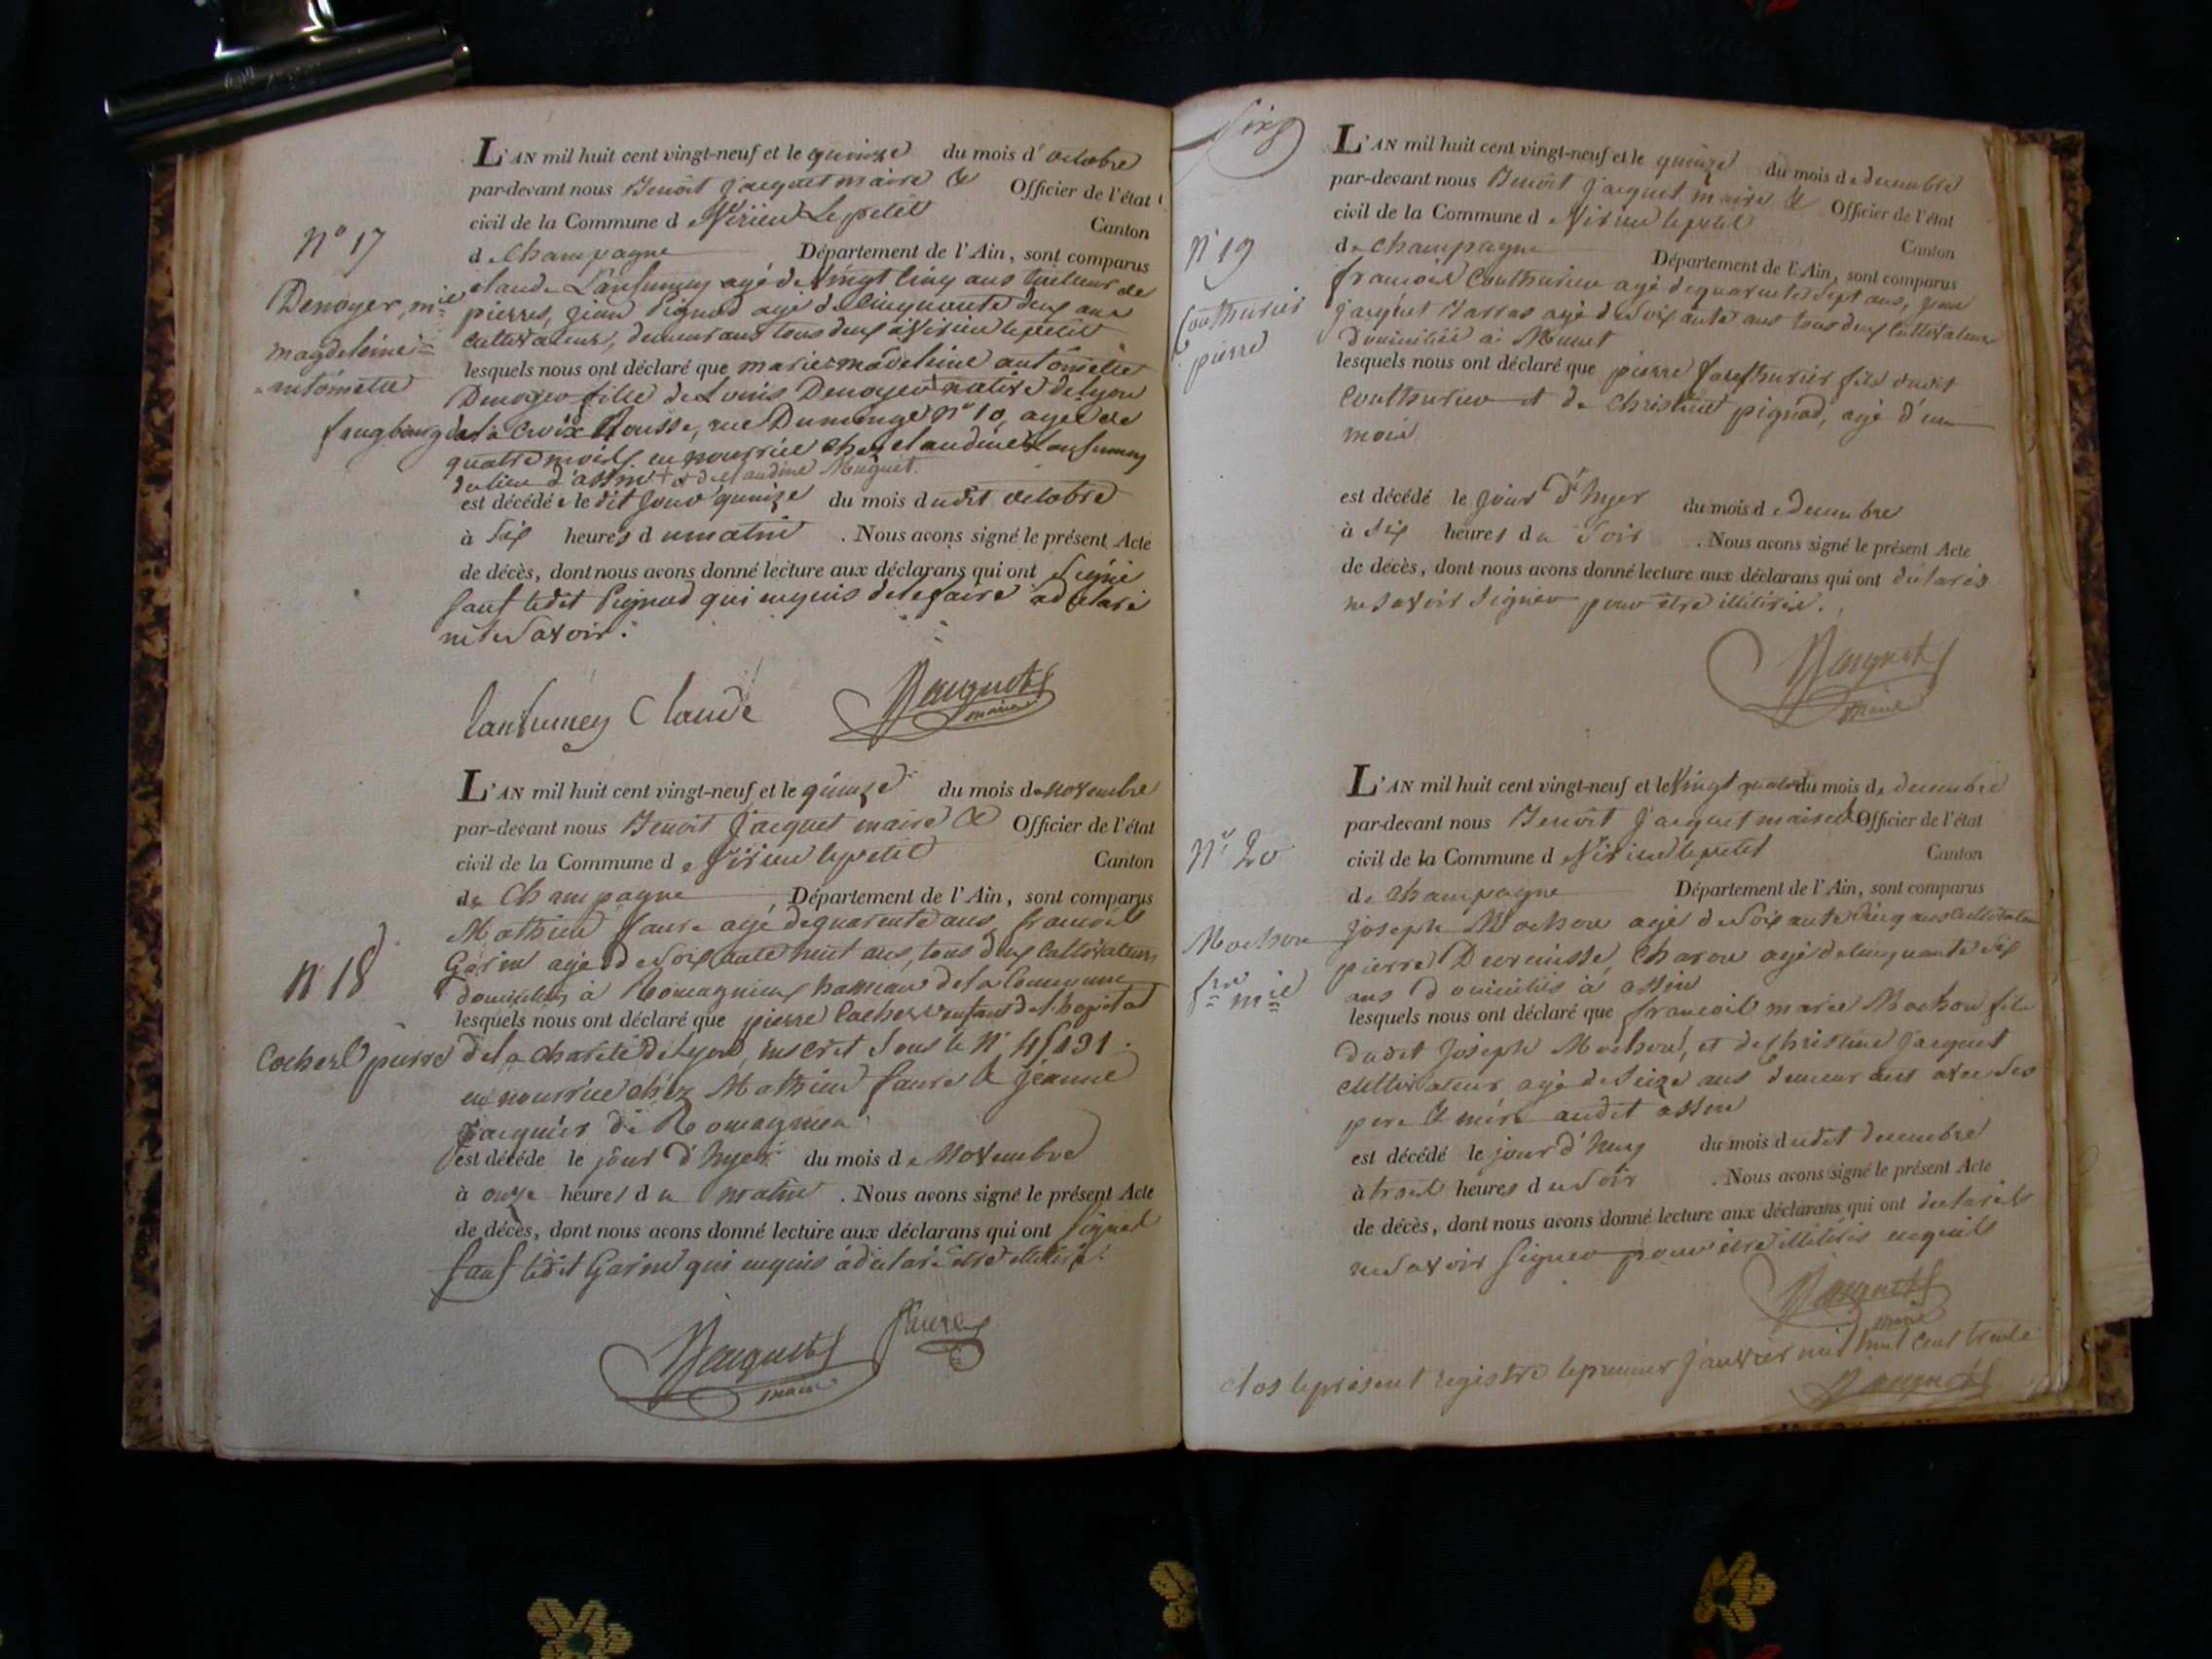 L'AN mil huit cent vingt-neuf et le quinze du mois d'octobre
par-devant nous Benoit Jacquet maire & Officier de l'état
civil de la Commune de Virieu Le petit Canton
de Champagne Département de l'Ain, sont comparus
N° 17
claude Lansumey agé de Vingt cinq ans tailleur de
Denoyer, mie
pierres, jean Pignod agé de Cinquante deux ans
cultivateur, demeurant tous deux à Virieu le petit
magdeleine
lesquels nous ont déclaré que marie madeleine antoinette
antoinette
Denoyer fille de Louis Denoyer + native de Lyon
faugbourg de la Croix Rousse, rue Dumenge N° 10, agée de
quatre mois, en nourrice chez claudine Lansumey
du lieu d'assin + et de claudine Muguet
est décédée le dit jour quinze du mois dudit octobre
à Six heures du matin . Nous avons signé le présent Acte
de décès, dont nous avons donné lecture aux déclarans qui ont Signé
Sauf ledit Pignod qui enquis de le faire a déclaré
ne le Savoir.
Lansumey Claude Jacquet
maire
L'AN mil huit cent vingt-neuf et le quinze du mois de novembre
par-devant nous Benoit Jacquet maire & Officier de l'état
civil de la Commune de Virieu le petit Canton
de Champagne , Département de l'Ain, sont comparus
Mathieu faure agé de quarente ans, francois
N° 18
Garin agé de Soixante huit ans, tous deux Cultivateurs
domiciliés à Romagnieux hameau de la Commune
lesquels nous ont déclaré que pierre Cocherel enfant de l'hopital
Cocherel pierre
de la Charité de Lyon, inscrit Sous le N° 45131.
en nourrice chez Mathieu faure & Jeanne
de Romagnieu
est décédé le jour d'hyer du mois de Novembre
à onze heures du matin . Nous avons signé le présent Acte
de décès, dont nous avons donné lecture aux déclarans qui ont Signé
Sauf ledit Garin qui enquis a déclaré être illitéré.
Jacquet faure
maire
Six
L'AN mil huit cent vingt-neuf et le quinze du mois de decembre
par-devant nous Benoit Jacquet maire & Officier de l'état
civil de la Commune de Virieu le petit Canton
N° 19
de Champagne Département de l'Ain, sont comparus
francois Couthurier agé de quarente Sept ans, jean
Couthurier
pierre
jacquet Barras agé de Soixante ans tous deux Cultivateurs
domiciliés à Munet
lesquels nous ont déclaré que pierre Couthurier fils dudit
Couthurier et de Christine pignod, agé d'un
mois
est décédé le jour d'hyer du mois de decembre
à Six heures du Soir . Nous avons signé le présent Acte
de décès, dont nous avons donné lecture aux déclarans qui ont déclarés
ne Savoir Signer pour être illitérés.
Jacquet
maire
L'AN mil huit cent vingt-neuf et le Vingt quatre du mois de decembre
par-devant nous Benoit Jacquet maire & Officier de l'état
N° 20
civil de la Commune de Virieu le petit Canton
de Champagne Département de l'Ain, sont comparus
Mochon
joseph Mochon agé de Soixante Cinq ans Cultivateur
frs mie
pierre Charon agé de Cinquante Six
ans domiciliés à assin
lesquels nous ont déclaré que francois marie Mochon fils
dudit Joseph Mochon, et de Christine Jacquet
cultivateur agé de Seize ans demeurant avec Ses
pere & mere audit assin
est décédé le jour d'huy du mois dudit decembre
à trois heures du Soir . Nous avons signé le présent Acte
de décès, dont nous avons donné lecture aux déclarans qui ont declarés
ne Savoir Signer pour être illitérés enquis
Jacquet
maire
Clos le présent registre le premier janvier mil huit cent trente
Jacquet